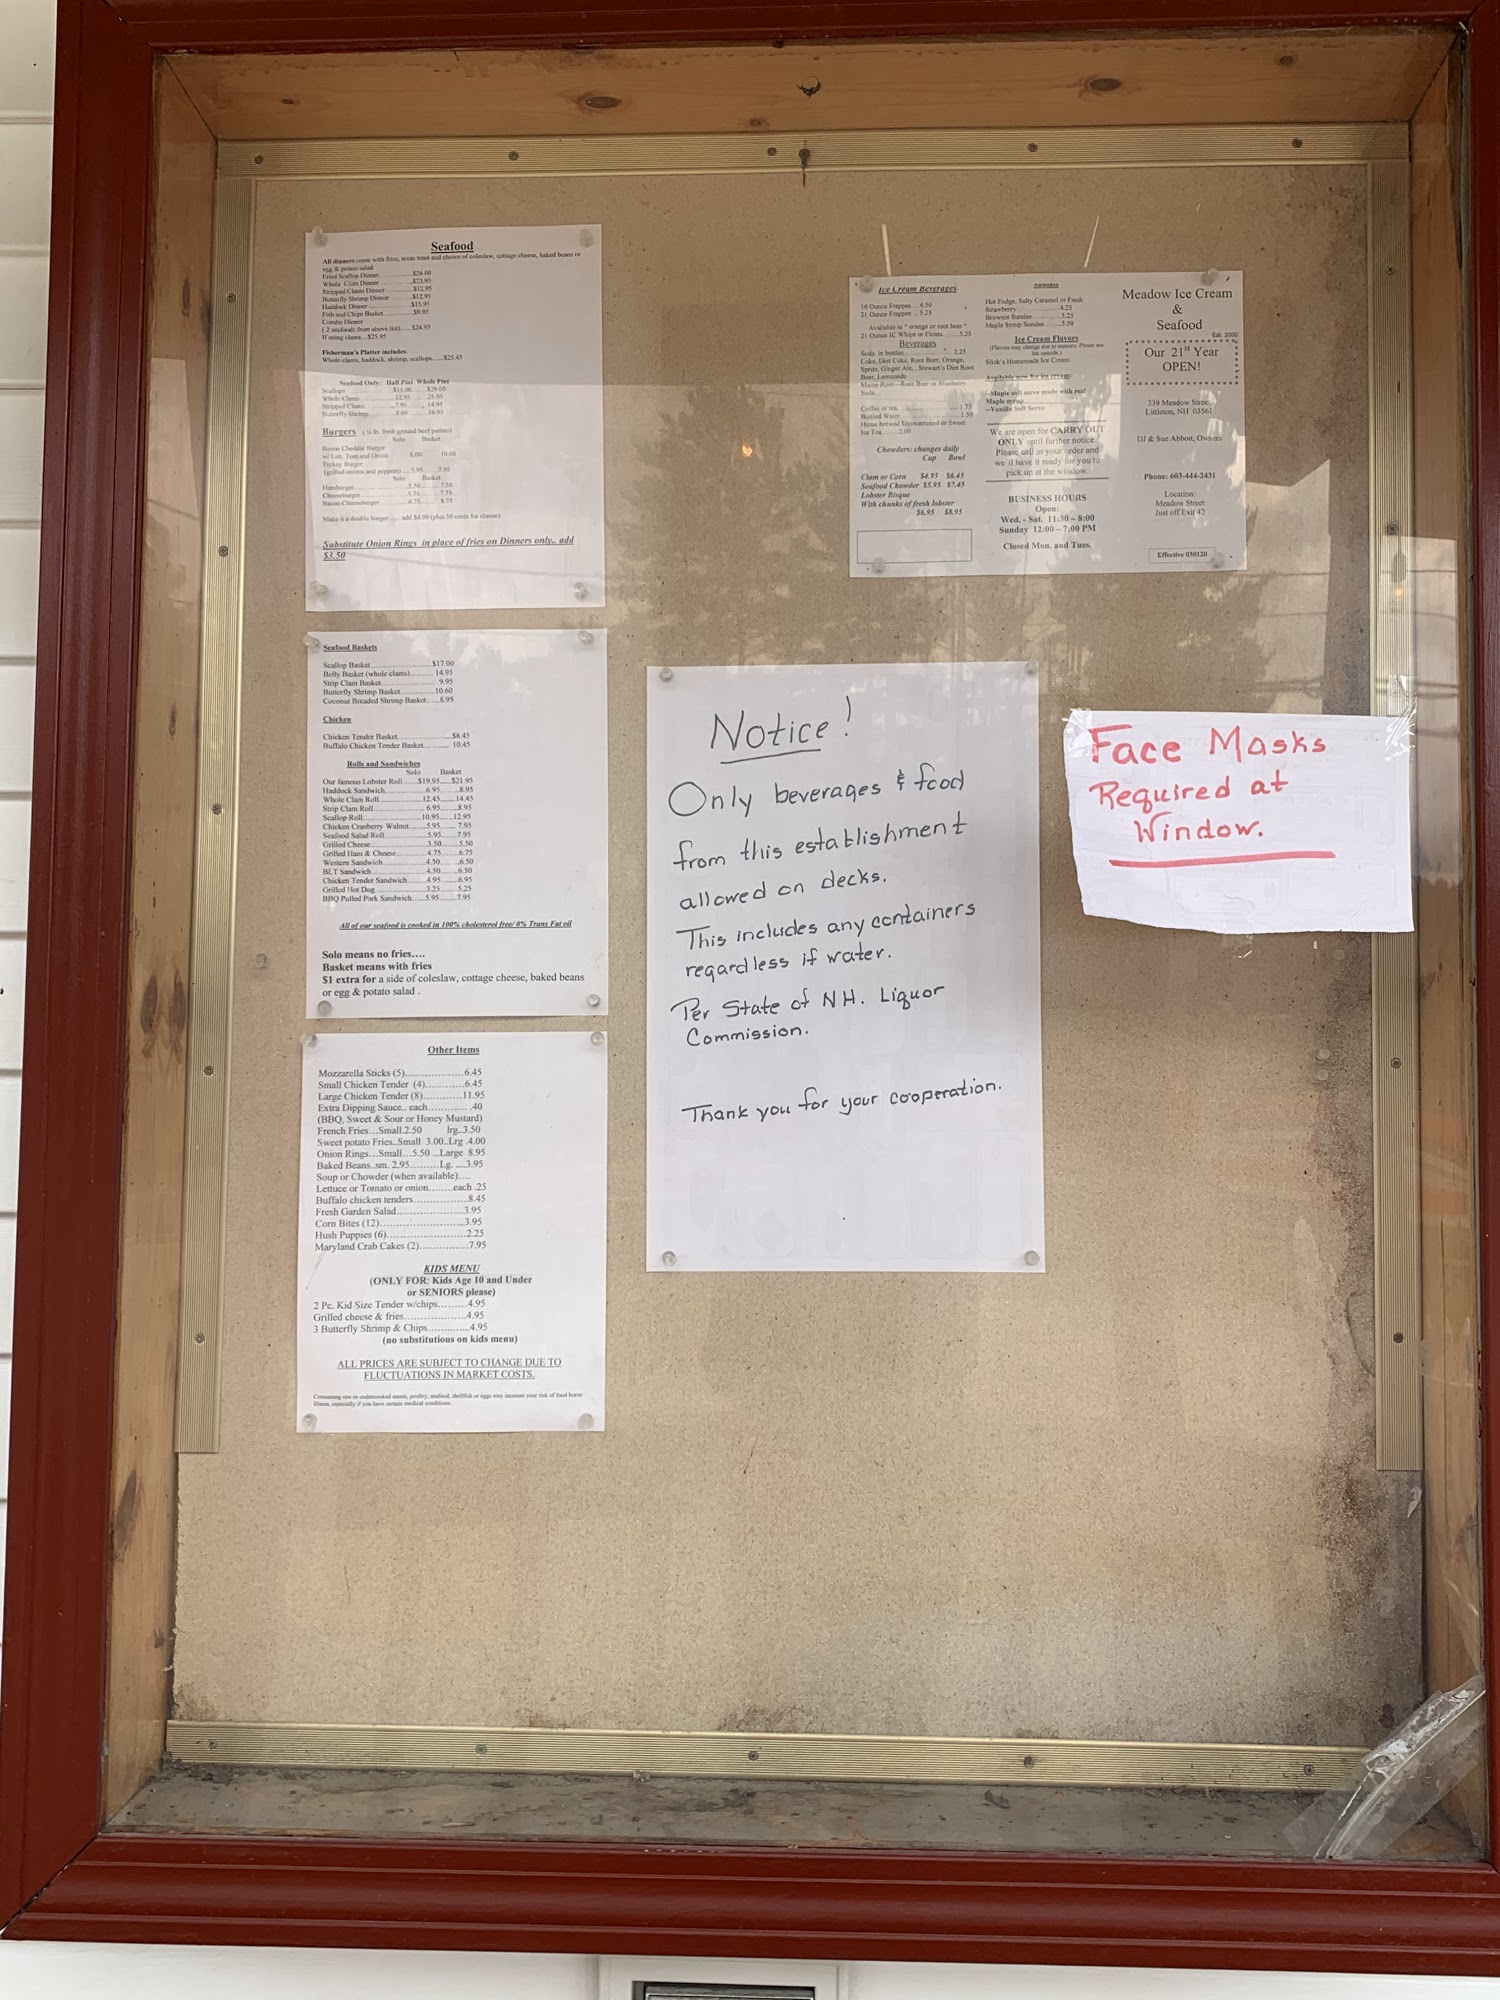 Seafood
All dinners come with fries, texas toast and choice of coleslaw, cottage cheese, baked beans or
egg & potato salad
Fried Scallop Dinner $26.00
Whole Clam Dinner $23.95
Stripped Clams Dinner $12.95
Butterfly Shrimp Dinner $12.95
Haddock Dinner $15.95
Fish and Chips Basket $9.95
Combo Dinner
( 2 seafoods from above list) $24.95
If using clams...$25.95
Fisherman's Platter includes.
Whole clams, haddock, shrimp, scallops......$25.45
Seafood Only: Half Pint Whole Pint
Scallops $15.00 $29.00
Whole Clams 12.95 25.95
Stripped Clams 7.95 14.95
Butterfly Shrimp 8.60 16.95
Burgers ( ¼ lb. fresh ground beef patties)
Solo Basket
Bacon Cheddar Burger
w/ Lett. Tom and Onion 8.00 10.00
Turkey Burger
(grilled onions and peppers) 5.95 7.95
Solo Basket
Hamburger 5.50 7.50
Cheeseburger 5.75 7.75
Bacon Cheeseburger 6.75 8.75
Make it a double burger add $4.00 (plus 50 cents for cheese)
Substitute Onion Rings in place of fries on Dinners only.. add
$3.50
Seafood Baskets
Scallop Basket $17.00
Belly Basket (whole clams) 14.95
Strip Clam Basket 9.95
Butterfly Shrimp Basket 10.60
Coconut Breaded Shrimp Basket 8.95
Chicken
Chicken Tender Basket $8.45
Buffalo Chicken Tender Basket 10.45
Rolls and Sandwiches
Solo Basket
Our famous Lobster Roll $19.95 $21.95
Haddock Sandwich 6.95 8.95
Whole Clam Roll 12.45 14.45
Strip Clam Roll 6.95 8.95
Scallop Roll 10.95 12.95
Chicken Cranberry Walnut 5.95 7.95
Seafood Salad Roll 5.95 7.95
Grilled Cheese 3.50 5.50
Grilled Ham & Cheese 4.75 6.75
Western Sandwich 4.50 6.50
BLT Sandwich 4.50 6.50
Chicken Tender Sandwich 4.95 6.95
Grilled Hot Dog 3.25 5.25
BBQ Pulled Pork Sandwich 5.95 7.95
All of our seafood is cooked in 100% cholesterol free/ 0% Trans Fat oil
Solo means no fries….
Basket means with fries
$1 extra for a side of coleslaw, cottage cheese, baked beans
or egg & potato salad .
Other Items
Mozzarella Sticks (5) 6.45
Small Chicken Tender (4) 6.45
Large Chicken Tender (8) 11.95
Extra Dipping Sauce.. each .40
(BBQ, Sweet & Sour or Honey Mustard)
French Fries...Small.2.50 lrg..3.50
Sweet potato Fries..Small 3.00..Lrg .4.00
Onion Rings...Small...5.50 ...Large 8.95
Baked Beans..sm. 2.95 Lg. ....3.95
Soup or Chowder (when available)....
Lettuce or Tomato or onion each .25
Buffalo chicken tenders 8.45
Fresh Garden Salad 3.95
Corn Bites (12) 3.95
Hush Puppies (6) 2.25
Maryland Crab Cakes (2) 7.95
KIDS MENU
(ONLY FOR: Kids Age 10 and Under
or SENIORS please)
2 Pc. Kid Size Tender w/chips 4.95
Grilled cheese & fries 4.95
3 Butterfly Shrimp & Chips 4.95
(no substitutions on kids menu)
ALL PRICES ARE SUBJECT TO CHANGE DUE TO
FLUCTUATIONS IN MARKET COSTS.
Consuming raw or undercooked meats, poultry, seafood, shellfish or eggs may increase your risk of food borne
illness, especially if you have certain medical conditions.
Ice Cream Beverages
16 Ounce Frappes 4.50
21 Ounce Frappes 5.25
Available in " orange or root beer "
21 Ounce IC Whips or Floats 5.25
Beverages
Soda in bottles 2.25
Coke, Diet Coke, Root Beer, Orange,
Sprite, Ginger Ale, . Stewart's Diet Root
Beer, Lemonade
Maine Root—Root Beer or Blueberry
Soda
Coffee or tea 1.75
Bottled Water 1.50
Home brewed Unsweetened or Sweet
Ice Tea 2.00
Chowders: changes daily
Cup Bowl
Clam or Corn $4.95 $6.45
Seafood Chowder $5.95 $7.45
Lobster Bisque
With chunks of fresh lobster
$6.95 $8.95
Sundaes
Hot Fudge, Salty Caramel or Fresh
Strawberry 4.25
Brownie Sundae 5.25
Maple Syrup Sundae 5.50
Ice Cream Flavors
(Flavors may change due to seasons. Please see
list outside.)
Slick's Homemade Ice Cream
Available now for ice cream:
~Maple soft serve made with real
Maple syrup
~Vanilla Soft Serve
We are open for CARRY OUT
ONLY until further notice.
Please call in your order and
we ll have it ready for you to
pick up at the window.
BUSINESS HOURS
Open:
Wed. - Sat. 11:30 – 8:00
Sunday 12:00 – 7:00 PM
Closed Mon. and Tues.
Meadow Ice Cream
&
Seafood
Est. 2000
Our 21st Year
OPEN!
339 Meadow Street
Littleton, NH 03561
DJ & Sue Abbott, Owners
Phone: 603-444-2431
Location:
Meadow Street
Just off Exit 42
Effective 030120
Notice!
Only beverages & food
from this establishment
allowed on decks.
This includes any containers
regardless if water.
Per State of NH. Liquor
Commission.
Thank you for your cooperation.
Face Masks
Required at
Window.